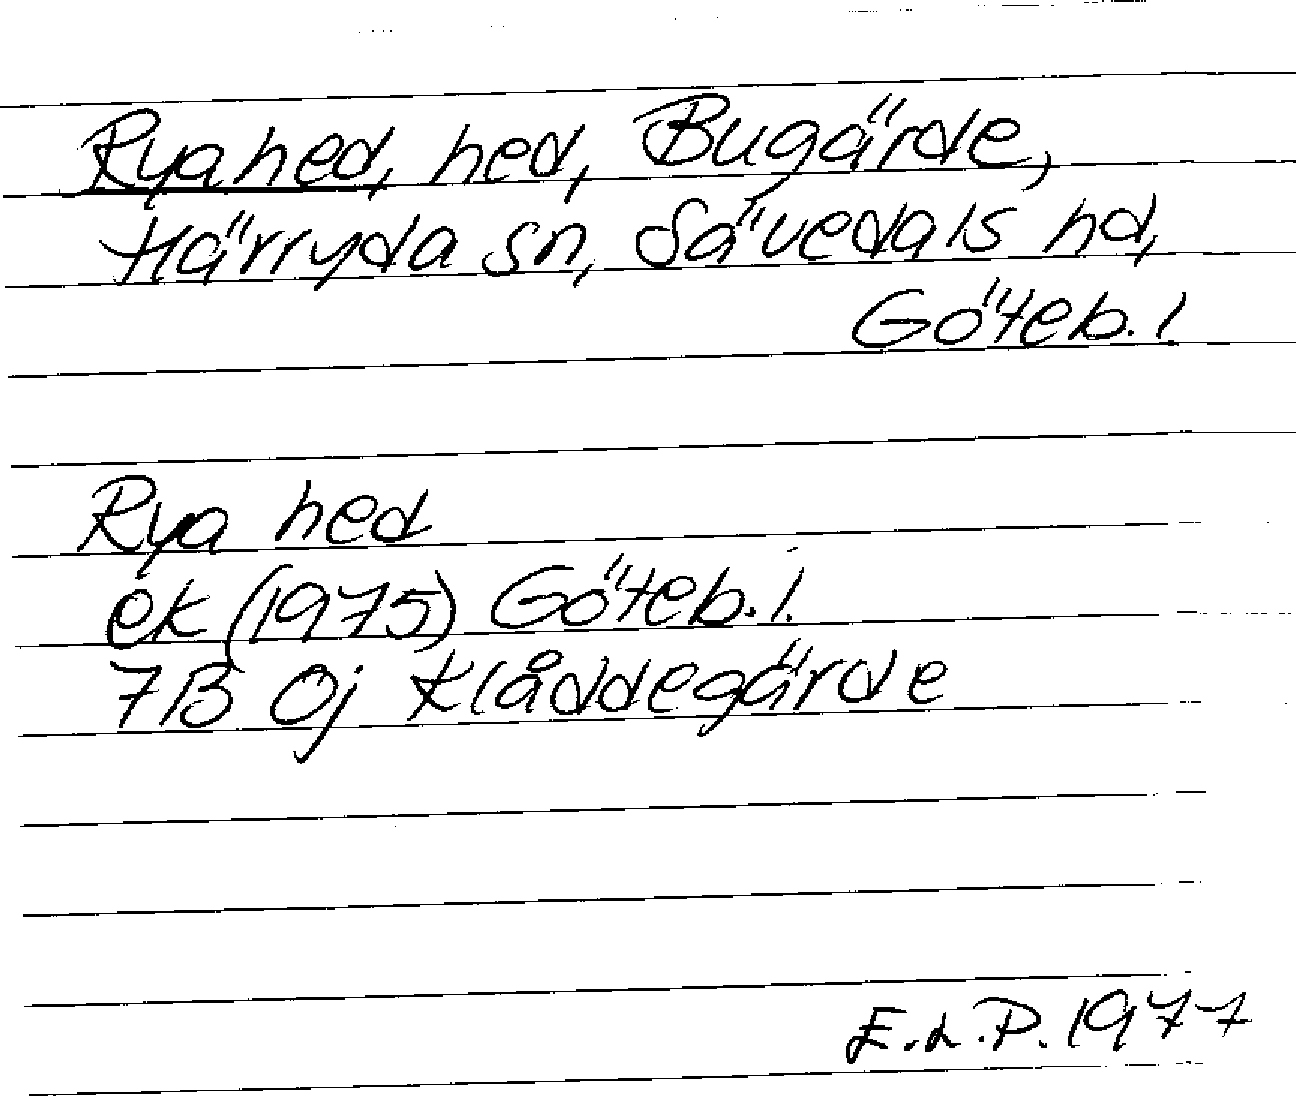 Ryahed, hed, Bugärde,
Härryda sn, Sävedals hd,
Göteb. l.
Rya hed
ek (1975) Göteb. l.
7B 0j Klåddegärde
E.L.P. 1977